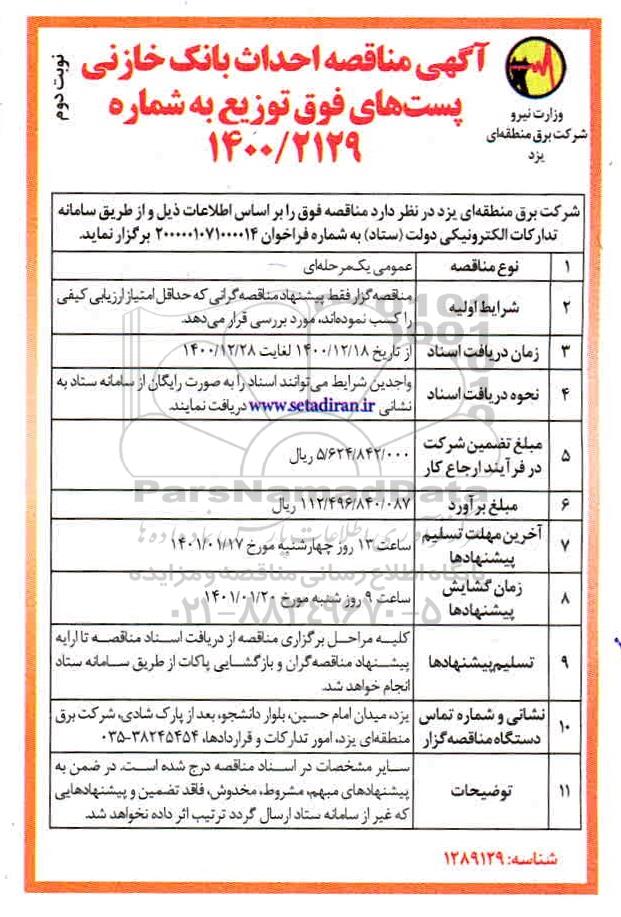 نوبت دوم
آگهی مناقصه احداث بانک خازنی
پست‌های فوق توزیع به شماره
۱۴۰۰/۲۱۲۹
وزارت نیرو
شرکت برق منطقه‌ای
یزد
شرکت برق منطقه‌ای یزد در نظر دارد مناقصه فوق را بر اساس اطلاعات ذیل و از طریق سامانه
تدارکات الکترونیکی دولت (ستاد) به شماره فراخوان ۲۰۰۰۰۰۱۰۷۱۰۰۰۰۱۴ برگزار نماید.
۱ نوع مناقصه عمومی یک‌مرحله‌ای
۲ شرایط اولیه مناقصه‌گزار فقط پیشنهاد مناقصه‌گرانی که حداقل امتیاز ارزیابی کیفی
را کسب نموده‌اند، مورد بررسی قرار می‌دهد.
۳ زمان دریافت اسناد از تاریخ ۱۴۰۰/۱۲/۱۸ لغایت ۱۴۰۰/۱۲/۲۸
۴ نحوه دریافت اسناد واجدین شرایط می‌توانند اسناد را به صورت رایگان از سامانه ستاد به
نشانی www.setadiran.ir دریافت نمایند.
۵ مبلغ تضمین شرکت
در فرآیند ارجاع کار ۵/۶۲۴/۸۴۲/۰۰۰ ریال
۶ مبلغ برآورد ۱۱۲/۴۹۶/۸۴۰/۰۸۷ ریال
۷ آخرین مهلت تسلیم
پیشنهادها ساعت ۱۳ روز چهارشنبه مورخ ۱۴۰۱/۰۱/۱۷
۸ زمان گشایش
پیشنهادها ساعت ۹ روز شنبه مورخ ۱۴۰۱/۰۱/۲۰
۹ تسلیم پیشنهادها کلیه مراحل برگزاری مناقصه از دریافت اسناد مناقصه تا ارایه
پیشنهاد مناقصه‌گران و بازگشایی پاکات از طریق سامانه ستاد
انجام خواهد شد.
۱۰ نشانی و شماره تماس
دستگاه مناقصه‌گزار یزد، میدان امام حسین، بلوار دانشجو، بعد از پارک شادی، شرکت برق
منطقه‌ای یزد، امور تدارکات و قراردادها، ۳۸۲۴۵۴۵۴-۰۳۵
۱۱ توضیحات سایر مشخصات در اسناد مناقصه درج شده است. در ضمن به
پیشنهادهای مبهم، مشروط، مخدوش، فاقد تضمین و پیشنهادهایی
که غیر از سامانه ستاد ارسال گردد ترتیب اثر داده نخواهد شد.
شناسه: ۱۲۸۹۱۲۹
ParsNamadData
پایگاه اطلاع رسانی مناقصه و مزایده
۰۲۱-۸۸۳۴۹۶۷۰-۵